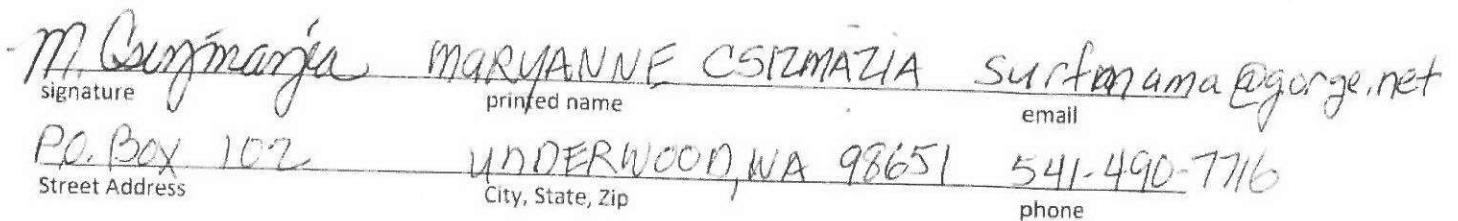 M. Csizmazia MARYANNE CSIZMAZIA surfmama@gorge.net
signature printed name email
P.O. Box 102 UNDERWOOD, WA 98651 541-490-7716
Street Address City, State, Zip phone